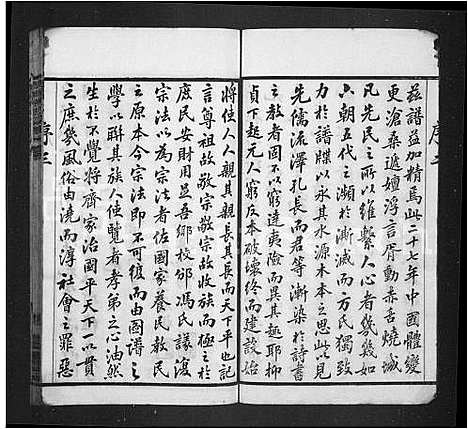 序二
茲譜益加精焉此二十七年中國體變
更滄桑遞嬗浮言胥動赤舌燒城
凡先民之所以維繫人心者幾幾如
六朝五代之瀕於澌滅而方氏獨致
力於譜牒以永其水源木本之思此以見
先儒流澤孔長而君等漸染於詩書
之教者固不以窮達夷險而異其趣耶抑
貞下起元人窮反本破壞終而建設始
將使人人親其親長其長而天下平也記
言尊祖故敬宗敬宗故收族而極之於
庶民安財用足吾鄉校邠馮氏議復
宗法以為宗法者佐國家養民教民
之原本今宗法即不可復而由圖譜之
學以聯其族人使覽者孝弟之心油然
生於不覺將齊家治國平天下以一貫
之庶幾風俗由澆而淳社會之罪惡
序三